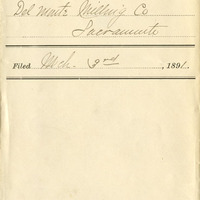 Del Monte Milling Co
Sacramento
Filed Mch. 3rd, 1891.